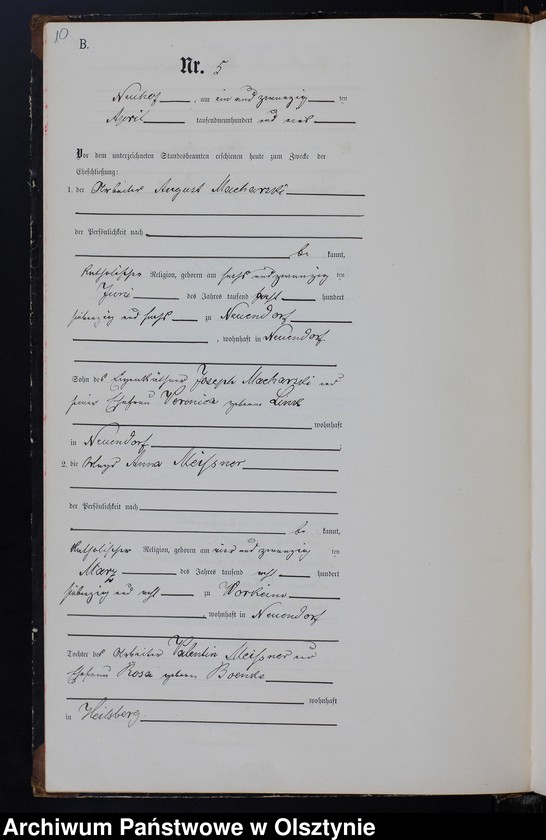 10
B.
Nr. 5
Neuhof, am ein und zwanzig ten
April tausendneunhundert und vier
Vor dem unterzeichneten Standesbeamten erschienen heute zum Zwecke der
Eheschließung:
1. der Arbeiter August Macharzki
der Persönlichkeit nach
be kannt,
katholischer Religion, geboren am sechs und zwanzig ten
Juni des Jahres tausend acht hundert
siebenzig und sechs zu Neuendorf
, wohnhaft in Neuendorf
Sohn des Eigenkäthner Joseph Macharzki und
seiner Ehefrau Veronica geborene Link
wohnhaft
in Neuendorf ;
2. die Magd Anna Meißner
der Persönlichkeit nach
be kannt,
katholischer Religion, geboren am vier und zwanzig ten
März des Jahres tausend acht hundert
siebenzig und acht zu Workeim
, wohnhaft in Neuendorf
Tochter des Arbeiter Valentin Meißner und
Ehefrau Rosa geborene
wohnhaft
in Heilsberg
Archiwum Państwowe w Olsztynie